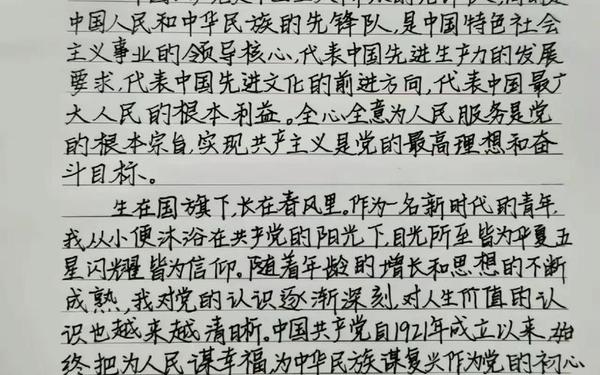 中国人民和中华民族的先锋队,是中国特色社会
主义事业的领导核心,代表中国先进生产力的发展
要求,代表中国先进文化的前进方向,代表中国最广
大人民的根本利益。全心全意为人民服务是党
的根本宗旨,实现共产主义是党的最高理想和奋
斗目标。
生在国旗下,长在春风里。作为一名新时代的青年,
我从小便沐浴在共产党的阳光下,目光所至皆为华夏,五
星闪耀皆为信仰。随着年龄的增长和思想的不断
成熟,我对党的认识逐渐深刻,对人生价值的认
识也越来越清晰。中国共产党自1921年成立以来,始
终把为人民谋幸福,为中华民族谋复兴作为党的初心